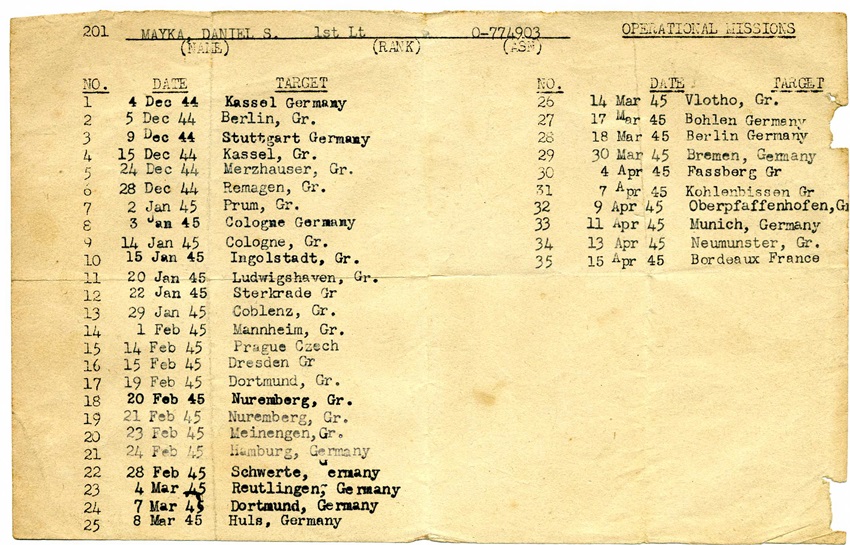 201 MAYKA, DANIEL S. 1st Lt O-774903 OPERATIONAL MISSIONS
(NAME) (RANK) (ASN)
NO. DATE TARGET
1 4 Dec 44 Kassel Germany
2 5 Dec 44 Berlin, Gr.
3 9 Dec 44 Stuttgart Germany
4 15 Dec 44 Kassel, Gr.
5 24 Dec 44 Merzhauser, Gr.
6 28 Dec 44 Remagen, Gr.
7 2 Jan 45 Prum, Gr.
8 3 Jan 45 Cologne Germany
9 14 Jan 45 Cologne, Gr.
10 15 Jan 45 Ingolstadt, Gr.
11 20 Jan 45 Ludwigshaven, Gr.
12 22 Jan 45 Sterkrade Gr
13 29 Jan 45 Coblenz, Gr.
14 1 Feb 45 Mannheim, Gr.
15 14 Feb 45 Prague Czech
16 15 Feb 45 Dresden Gr
17 19 Feb 45 Dortmund, Gr.
18 20 Feb 45 Nuremberg, Gr.
19 21 Feb 45 Nuremberg, Gr.
20 23 Feb 45 Meinengen,Gr.
21 24 Feb 45 Hamburg, Germany
22 28 Feb 45 Schwerte, Germany
23 4 Mar 45 Reutlingen, Germany
24 7 Mar 45 Dortmund, Germany
25 8 Mar 45 Huls, Germany
NO. DATE TARGET
26 14 Mar 45 Vlotho, Gr.
27 17 Mar 45 Bohlen Germany
28 18 Mar 45 Berlin Germany
29 30 Mar 45 Bremen, Germany
30 4 Apr 45 Fassberg Gr
31 7 Apr 45 Kohlenbissen Gr
32 9 Apr 45 Oberpfaffenhofen,Gr
33 11 Apr 45 Munich, Germany
34 13 Apr 45 Neumunster, Gr.
35 15 Apr 45 Bordeaux France